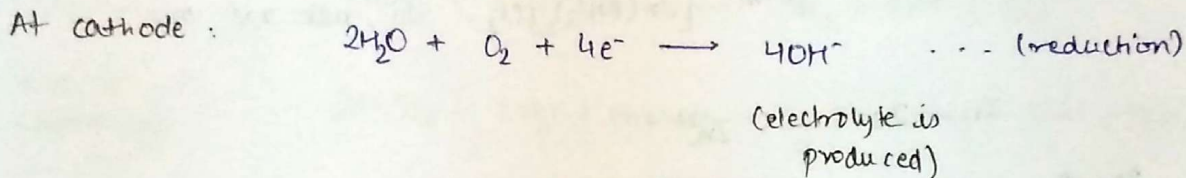 At cathode : 2H₂O + O₂ + 4e⁻ → 4OH⁻ ... (reduction)
(electrolyte is
produced)